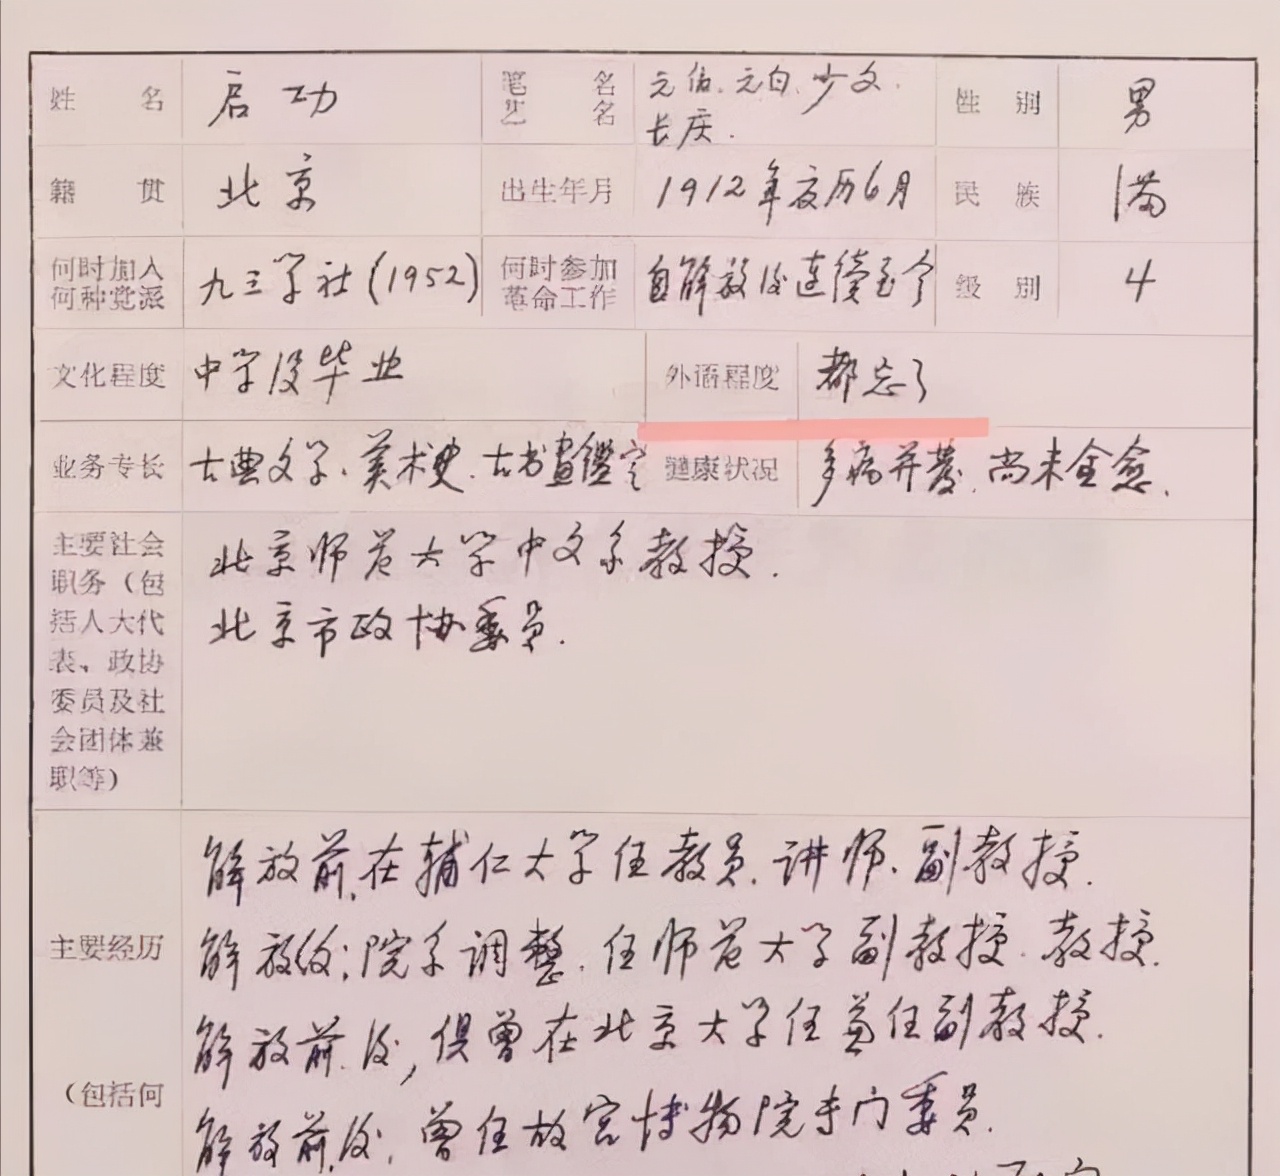 姓 名 启功 笔 名 元伯、元白、少文、 性 别 男
艺 名 长庆.
籍 贯 北京 出生年月 1912年夏历6月 民 族 满
何时加入 九三学社(1952) 何时参加 自解放后连续至今 级 别 4
何种党派 革命工作
文化程度 中学没毕业 外语程度 都忘了
业务专长 古典文学、美术史、古书画鑑定 健康状况 多病并发,尚未全愈.
主要社会
职务（包
括人大代
表、政协
委员及社
会团体兼
职等）
北京师范大学中文系教授.
北京市政协委员.
主要经历
（包括何
解放前,在辅仁大学任教员、讲师、副教授.
解放后;院系调整.任师范大学副教授、教授.
解放前、后,俱曾在北京大学任兼任副教授.
解放前、后,曾任故宫博物院专门委员.